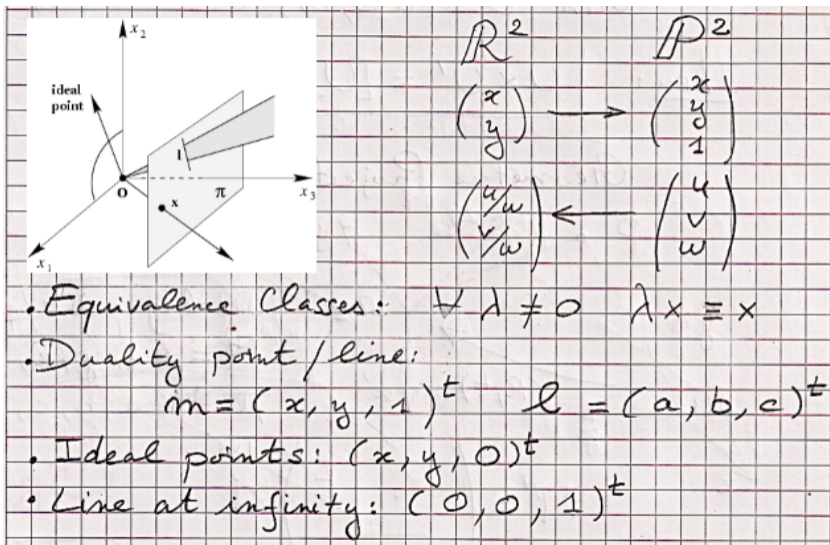 x₂
ideal
point
l
O
π
x
x₃
x₁
ℝ² ℙ²
(x y) → (x y 1)
(u/w v/w) ← (u v w)
. Equivalence Classes: ∀ λ ≠ 0 λx ≡ x
. Duality point/line:
m = (x, y, 1)ᵗ l = (a, b, c)ᵗ
. Ideal points: (x, y, 0)ᵗ
. Line at infinity: (0, 0, 1)ᵗ